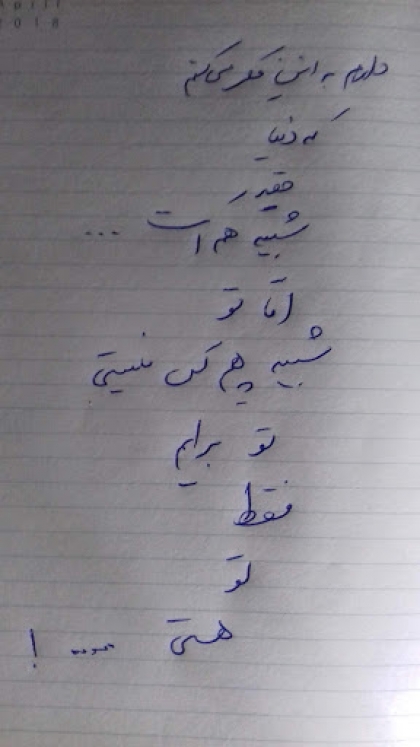 April
2018
دارم به این فکر می‌کنم
که دنیا
چقدر
شبیه هم است ...
امّا تو
شبیه هیچ کس نیستی
تو برایم
فقط
تو
هستی .... !